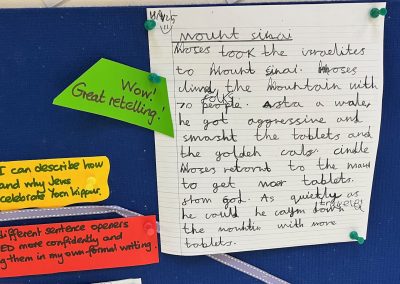 mount sinai
Moses took the israelites
to Mount sinai. Moses
climd the Mountain with
70 folk people. Asta a wale
he got aggressive and
smasht the tablets and
the golden calf
Moses retornt to the
to get tablets.
from god. As quietly as
he could he caym down
the with more
tablets.
Wow!
Great retelling!
I can describe how
and why Jews
celebrate Yom Kippur.
different sentence openers
ED more confidently and
g them in my own formal writing.